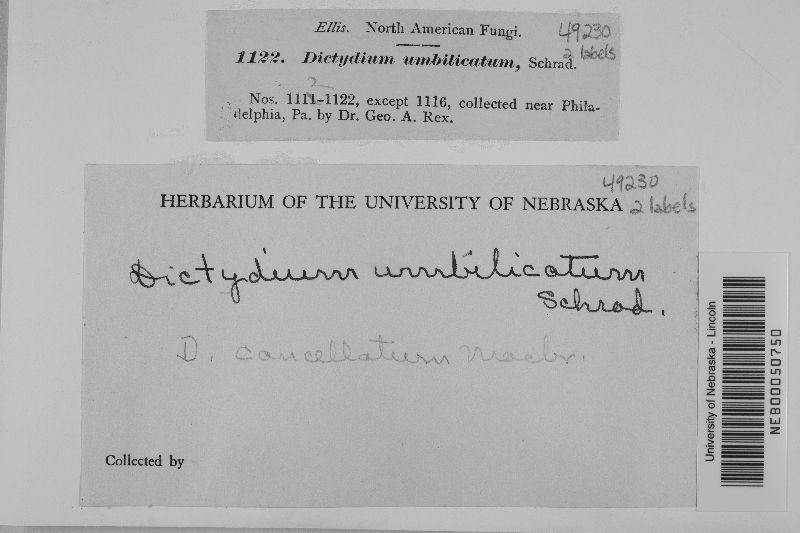 Ellis. North American Fungi.
49230
2 labels
1122. Dictydium umbilicatum, Schrad.
?
Nos. 1111–1122, except 1116, collected near Phila-
delphia, Pa. by Dr. Geo. A. Rex.
49230
HERBARIUM OF THE UNIVERSITY OF NEBRASKA 2 labels
Dictydium umbilicatum
Schrad.
D. cancellatum Macbr.
Collected by
University of Nebraska - Lincoln
NEB00050750